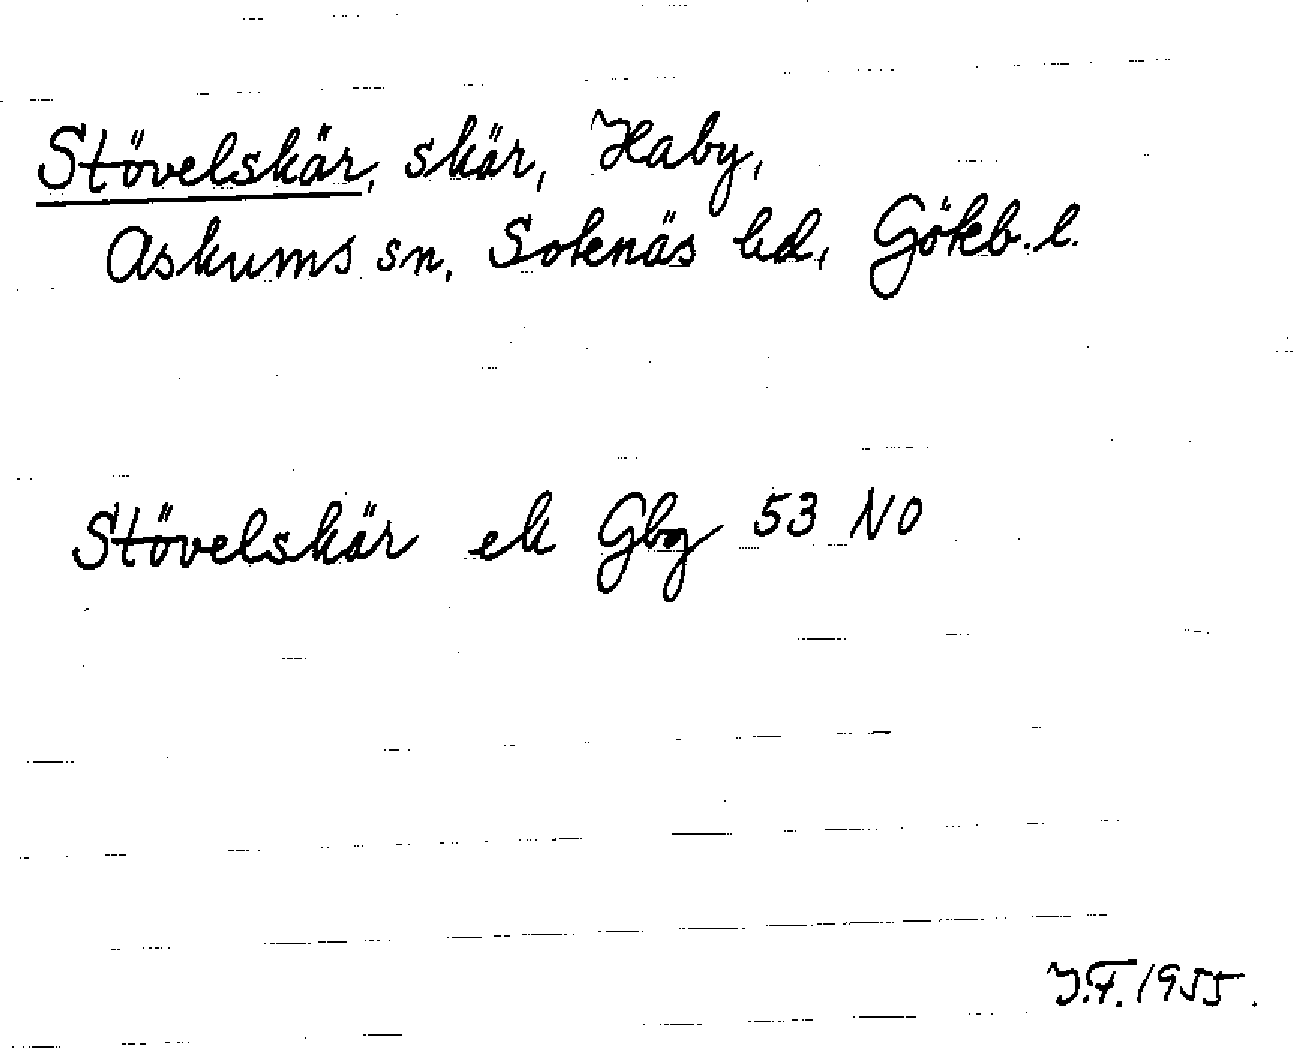 Stövelskär, skär, Haby,
Askums sn, Sotenäs hd, Göteb. l.
Stövelskär ek Gbg 53 NO
J.F. 1955.